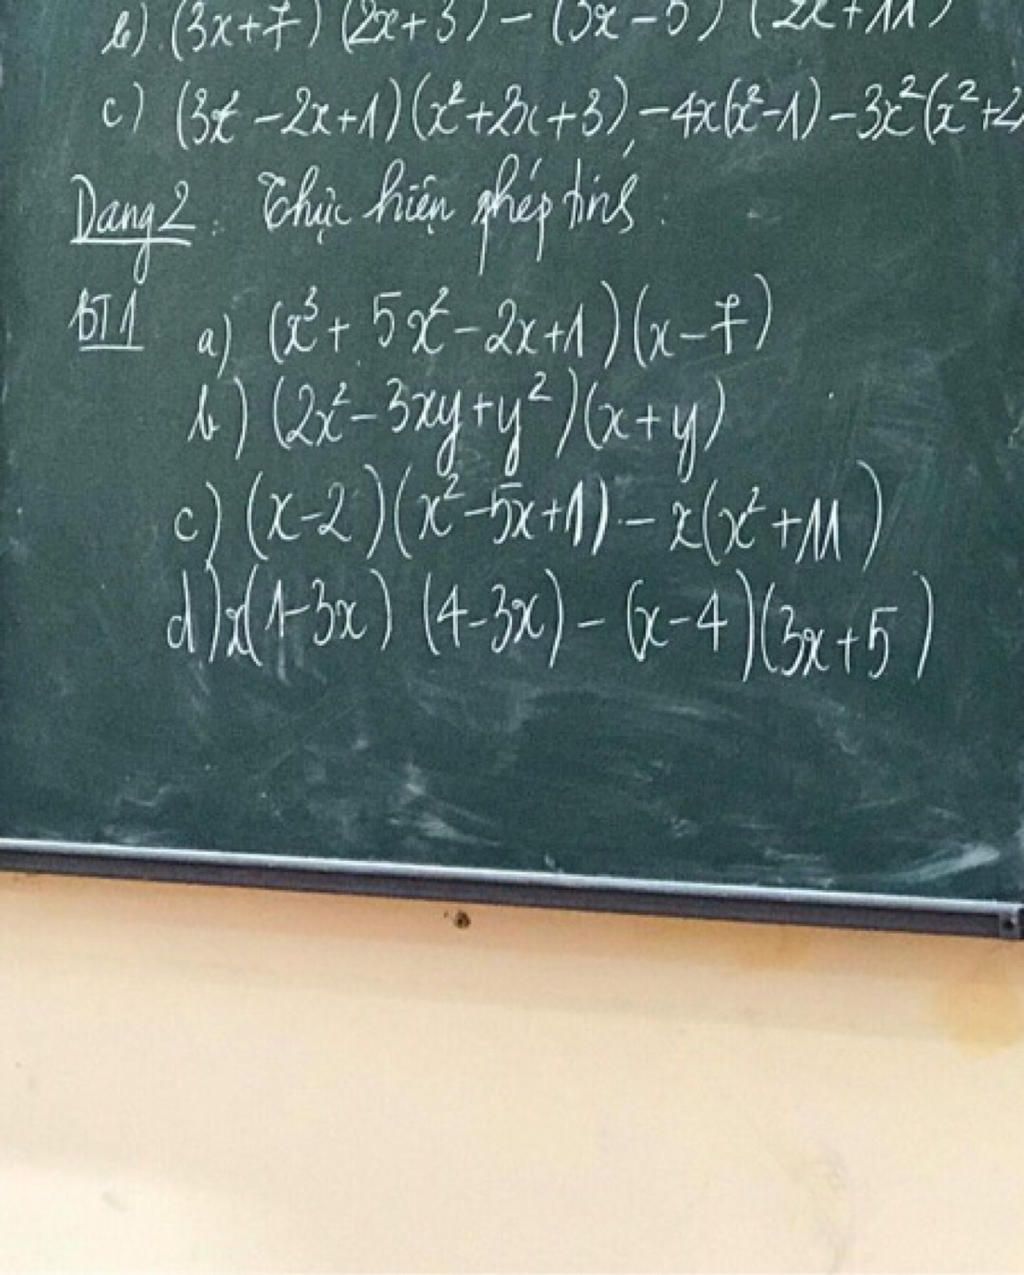 b) (3x+7) (2x+3) - (3x-5) (2x+11)
c) (3x² -2x+1) (x²+2x+3) -4x(x²-1) -3x²(x²+2
Dạng 2: Thực hiện phép tính.
BT1 a) (x³ + 5x² - 2x+1) (x-7)
b) (2x² - 3xy + y²) (x+y)
c) (x-2) (x² -5x+1) - x(x² +11)
d) x(1-3x) (4-3x) - (x-4) (3x+5)